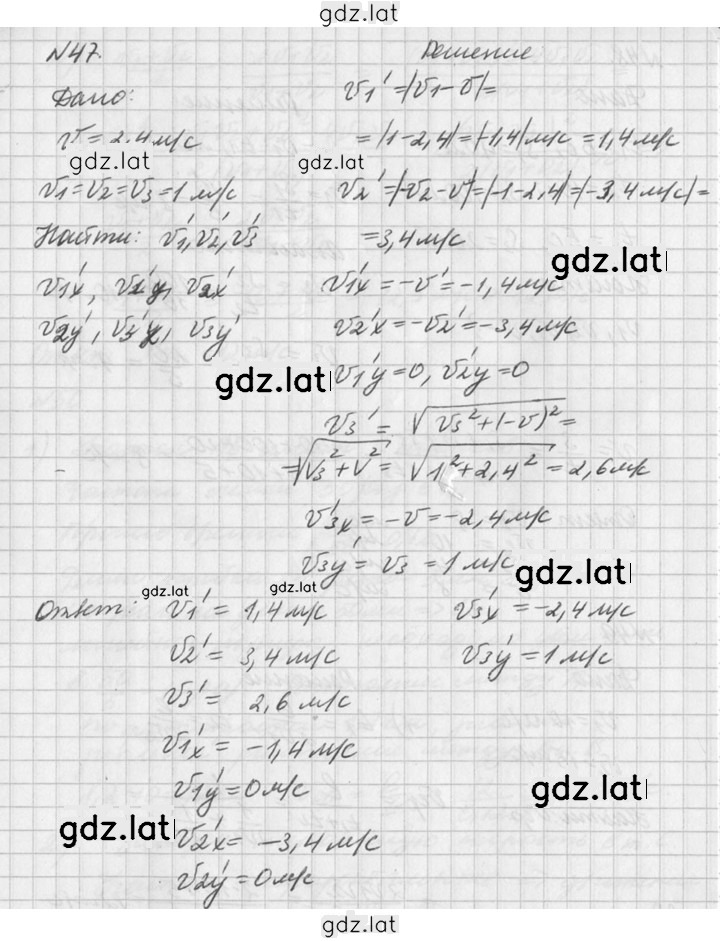 gdz.lat
N47.
Решение
Дано:
v = 2.4 м/с
gdz.lat
v1 = v2 = v3 = 1 м/с
Найти: v1', v2', v3'
v1x', v1'y, v2x'
v2y', v3'x, v3y'
v1' = |v1 - v| =
= |1 - 2,4| = |-1,4| м/с = 1,4 м/с
gdz.lat
v2' = |-v2 - v| = |-1 - 2,4| = |-3,4 м/с| =
= 3,4 м/с
gdz.lat
v1'x = -v' = -1,4 м/с
v2'x = -v2' = -3,4 м/с
gdz.lat
v1'y = 0, v2'y = 0
v3' = √(v3² + (-v)²) =
= √(v3² + v²) = √(1² + 2,4²) = 2,6 м/с
v3'x = -v = -2,4 м/с
v3y' = v3 = 1 м/с
gdz.lat
gdz.lat
gdz.lat
Ответ: v1' = 1,4 м/с
v3'x = -2,4 м/с
v2' = 3,4 м/с
v3y' = 1 м/с
v3' = 2,6 м/с
v1'x = -1,4 м/с
v1y' = 0 м/с
gdz.lat
gdz.lat
v2'x = -3,4 м/с
v2y' = 0 м/с
gdz.lat